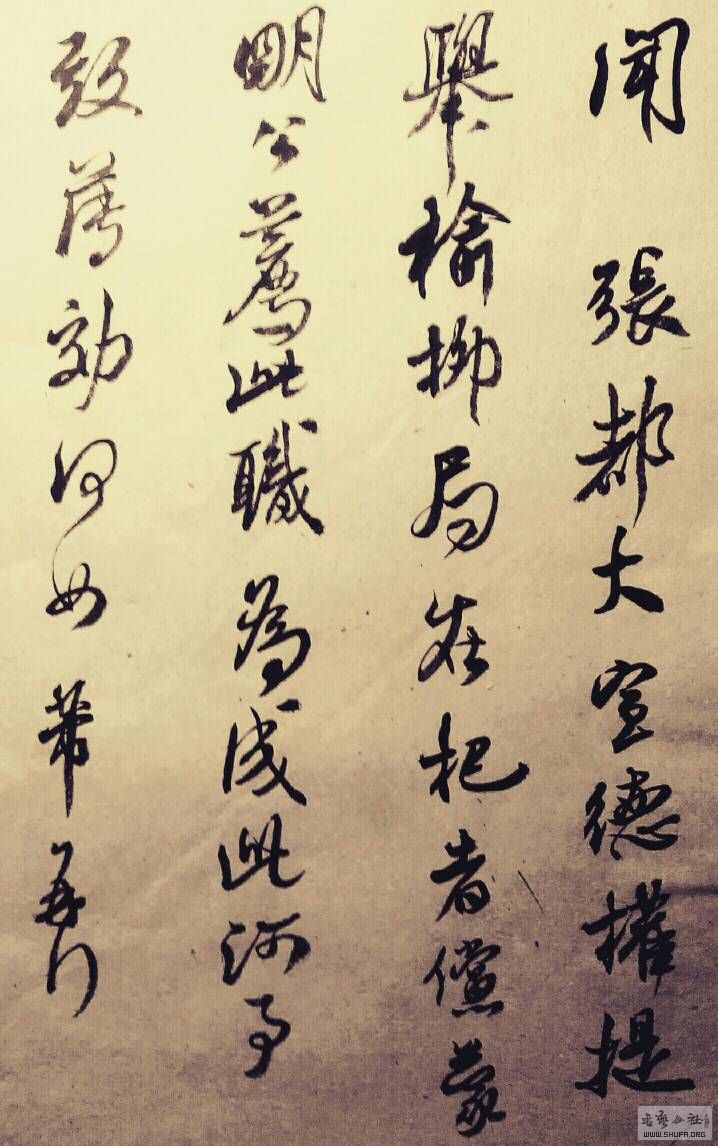 聞 張都大宣德權提
舉榆柳局在杞者儻蒙
明公薦此職為成此河事
致薄効何如 芾再行
書藝公社
WWW.SHUFA.ORG